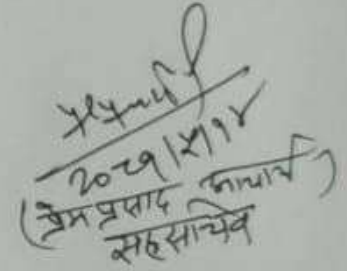 २०८१/५/१४
(प्रेम प्रसाद आचार्य)
सहसचिव